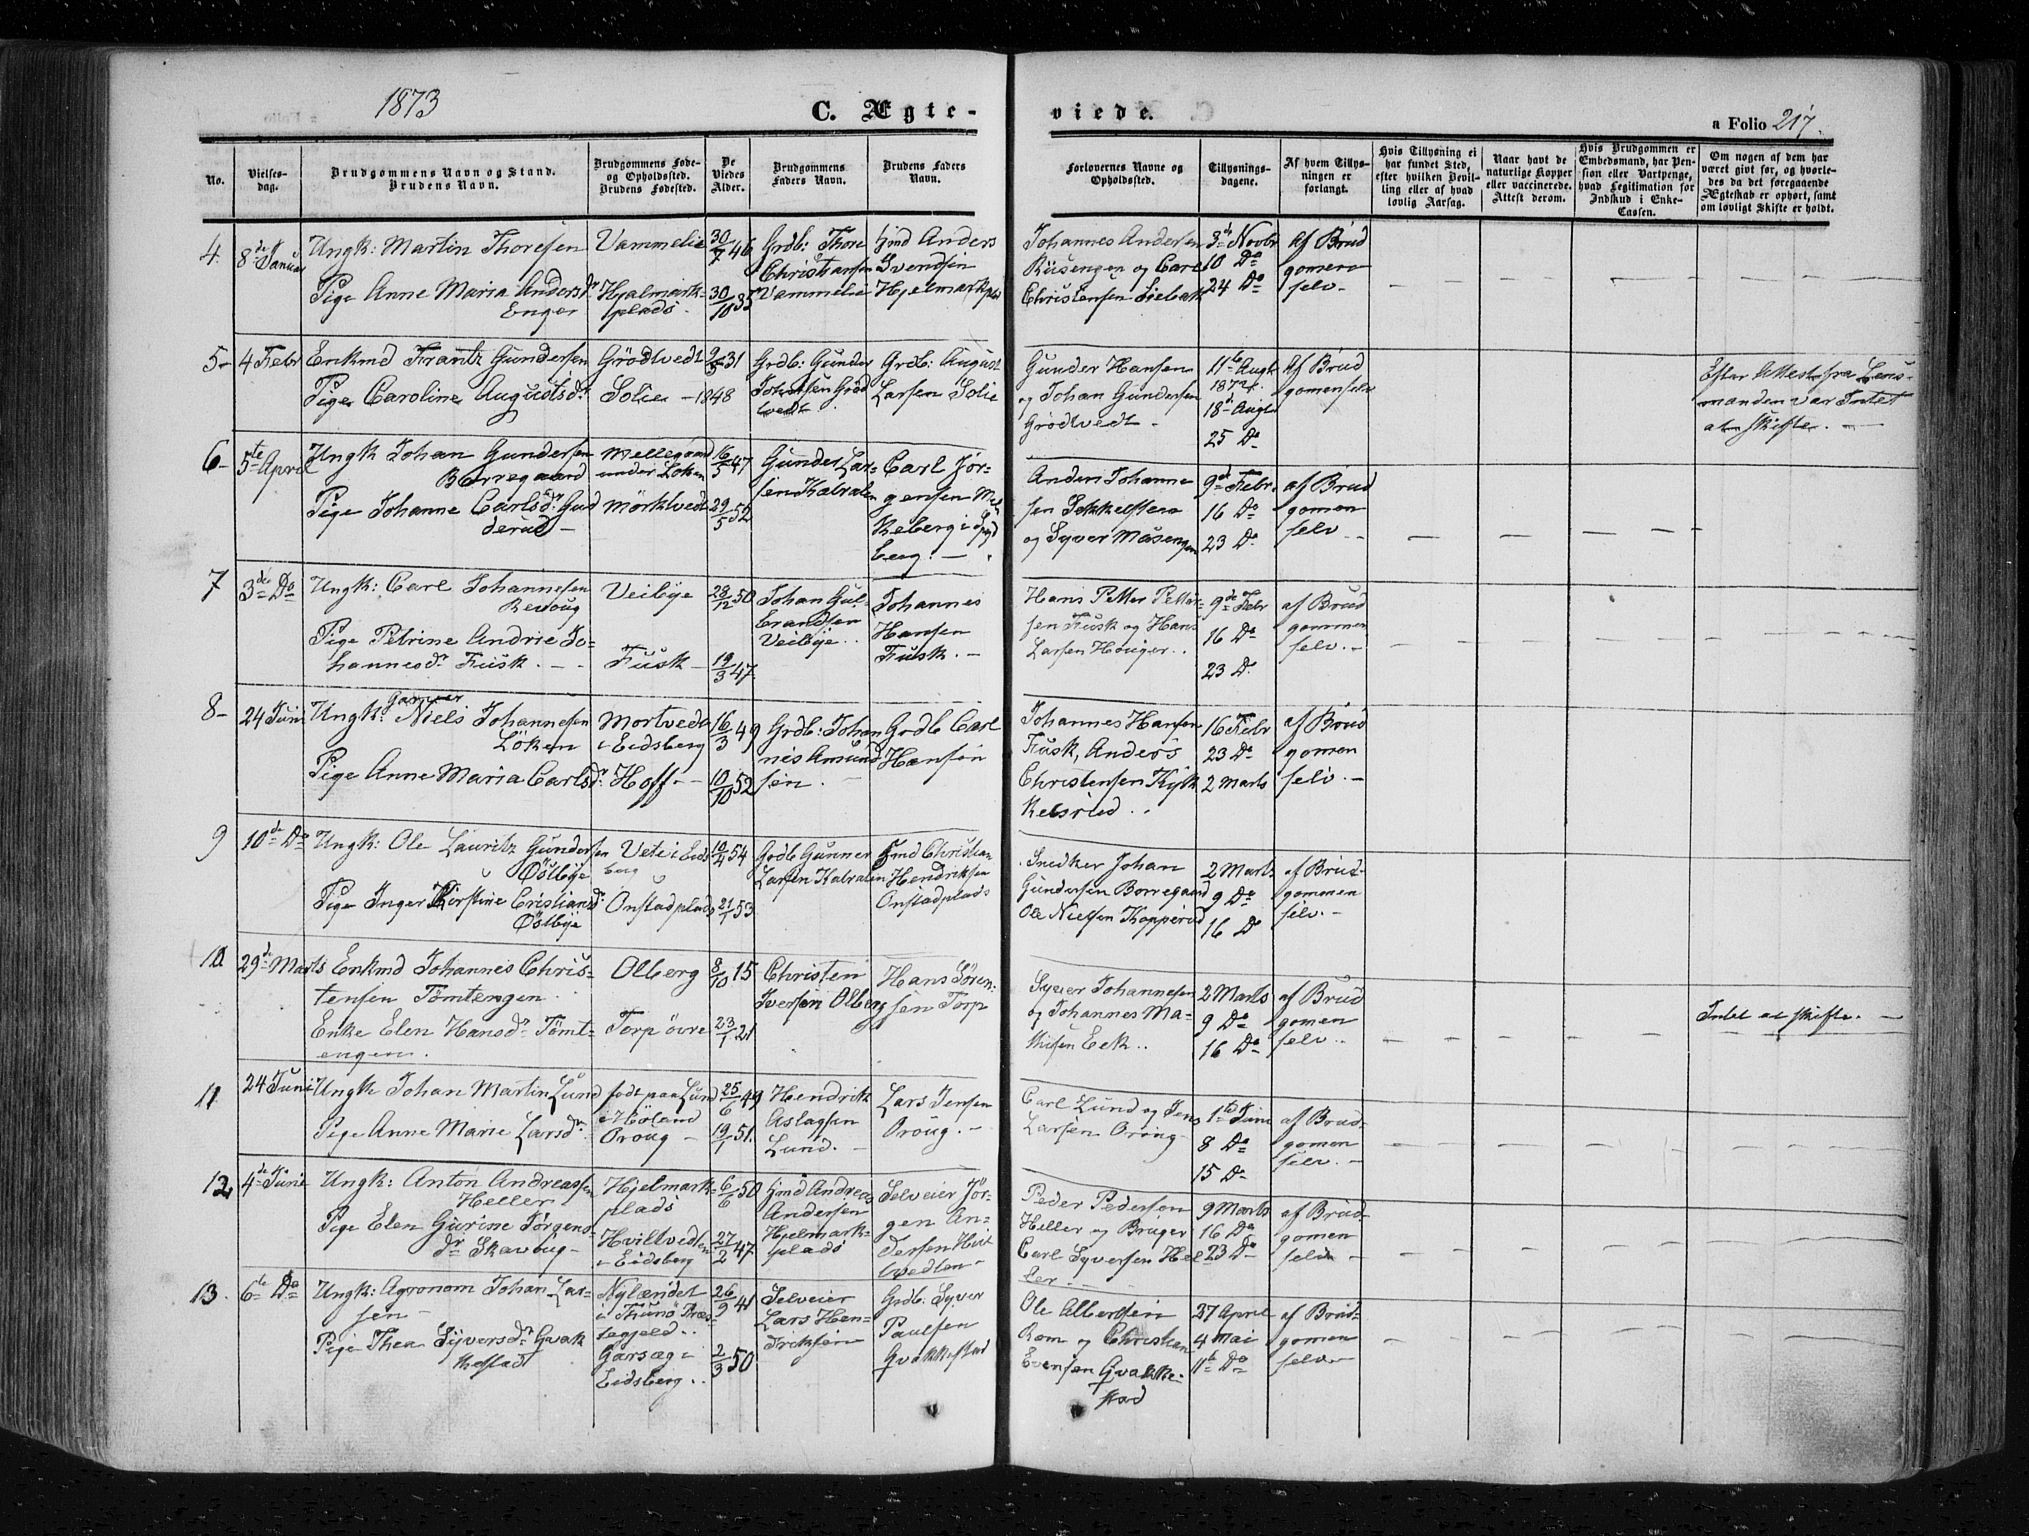 1873
C. Ægte-
viede.
a Folio 217.
No.
Vielses-
dag.
Brudgommens Navn og Stand.
Brudens Navn.
Brudgommens Føde-
og Opholdssted.
Brudens Fødested.
De
Viedes
Alder.
Brudgommens
Faders Navn.
Brudens Faders
Navn.
Forlovernes Navne og
Opholdssted.
Tillysnings-
dagene.
Af hvem Tillys-
ningen er
forlangt.
Hvis Tillysning ei
har fundet Sted,
efter hvilken Bevil-
ling eller af hvad
lovlig Aarsag.
Naar havt de
naturlige Kopper
eller vaccinerede.
Attest derom.
Hvis Brudgommen er
Embedsmand, har Pen-
sion eller Vartpenge,
hvad Legitimation for
Indskud i Enke-
Cassen.
Om nogen af dem har
været gift før, og hvorle-
des da det foregaaende
Ægteskab er ophørt, samt
om lovligt Skifte er holdt.
4.
8de Januar
Ungk: Martin Thoresen
Pige Anne Maria Andersdr
Enger
Vammelie
Hjelmark-
plads.
30/7 46
30/10 35
Grdb: Thore
Christiansen
Vammelie
Hmd Anders
Svendsen
Hjelmarkplds
Johannes Andersen
Riisengen og Carl
Christensen
3de Novbr
10 Do
24 Do
Af Brud
gomen
selv
5-
4 Febr
Enkmd Frantz Gundersen
Pige Caroline Augustsdr
Grödtvedt
Solie
2/5 31
1848
Grdb: Gunder
Johansen Gröd
tvedt
Grdb: August
Larsen Solie
Gunder Hansen
og Johan Gundersen
Grödtvedt
11te Augt
1872.
18de Augt
25 Do
Af Brud
gomen selv
Efter Attest fra Lens-
manden var Intet
at skifte.
6-
5te April
Ungk Johan Gundersen
Borregaard
Pige Johanne Carlsdr Gud
derud
Mellegaard
under Løken
Mörktvedt
16/5 47
29/5 52
Gunder Lar-
sen Kalralen
Carl Jör-
gensen
keberg i Spyd
berg.
Anders Johanne
sen
og Syver Måsengen
9de Febr.
16 Do
23 Do
af Brud
gomen
selv
7
3die Do
Ungk: Carl Johannesen
Revoug
Pige Petrine Andrie Jo-
hannesdr Fusk.
Veibye
Fusk
28/12 50
19/3 47
Johan Gul-
brandsen
Veibye.
Johannes
Hansen
Fusk.
Hans Petter Petter-
sen Fusk og Hans
Larsen Houger.
9de Febr
16 Do
23 Do
af Brud
gommen
selv.
8-
24 Juni
Ungk: Garver Niels Johannesen
Löken
Pige Anne Maria Carlsdr
Mortvedt
i Eidsberg
Hoff
16/3 49
10/10 52
Grdb: Johan
nes Amund
sen
Grdb Carl
Hansen
Johannes Hansen
Fusk, Anders
Christensen Kyk
kelsrud
16 Febr
23 Do
2 Marts
af Brud
gomen
selv.
9
10de Do
Ungk: Ole Lauritz Gundersen
Öölbye
Pige Inger Kirstine Cristiansdr
Östbye
Vete i Eids
berg
Onstadplads
19/4 54
21/1 53
Grdb Gunner
Larsen Kalralen
Hmd Christian
Hendriksen
Onstadplads
Snedker Johan
Gundersen Borregaard
Ole Nielsen Kopperud
2 Marts
9 Do
16 Do
af Brud-
gommen
selv.
10
29de Marts
Enkmd Johannes Chris-
tensen Tömtengen
Enke Elen Hansdr Tömt-
engen.
Olberg
Torp övre
8/10 15
23/1 21
Christen
Iversen Olberg
Hans Sören-
sen Torp
Syver Johannesen
og Johannes Ma-
thisen Eek.
2 Marts
9 Do
16 Do
af Brud
gomen
selv.
Intet at skifte.
11
24 Juni
Ungk Johan Martin Lund
Pige Anne Marie Larsdr
födt paa Lund
i Höland
Oroug
25/6 49
19/1 51.
Hendrik
Aslagsen
Lund.
Lars Jensen
Oroug.
Carl Lund og Jens
Larsen Oroug
1ste Juni
8 Do
15 Do
af Brud-
gomen
selv.
12
4de Juni
Ungk: Anton Andreassen
Heller
Pige Elen Gurine Jörgens-
dr Skavoug
Hjelmark-
plads
Hviltvedten
i Eidsberg
6/6 50
27/2 47
Hmd Andreas
Andersen
Hjelmark-
plads
Selveier Jör-
gen An-
dersen Hvil
tvedten
Peder Pedersen
Heller og Bruger
Carl Syversen Hel
ler
9 Marts
16 Do
23 Do
af Brud-
gomen
selv
13.
6te Do
Ungk: Agronom Johan Lar-
sen
Pige Thea Syversdr Qvak
kestad
Nylændet
i Thunö Præs-
tegjeld.
Garsæg i
Eidsberg.
26/9 41
2/3 50
Selveier
Lars Hen-
driksen
Grdb: Syver
Paulsen
Qvakkestad
Ole Albertsen
Rom og Christian
Evensen Qvakke-
stad
27 April
4 Mai
11te Do
af Brud-
gomen
selv